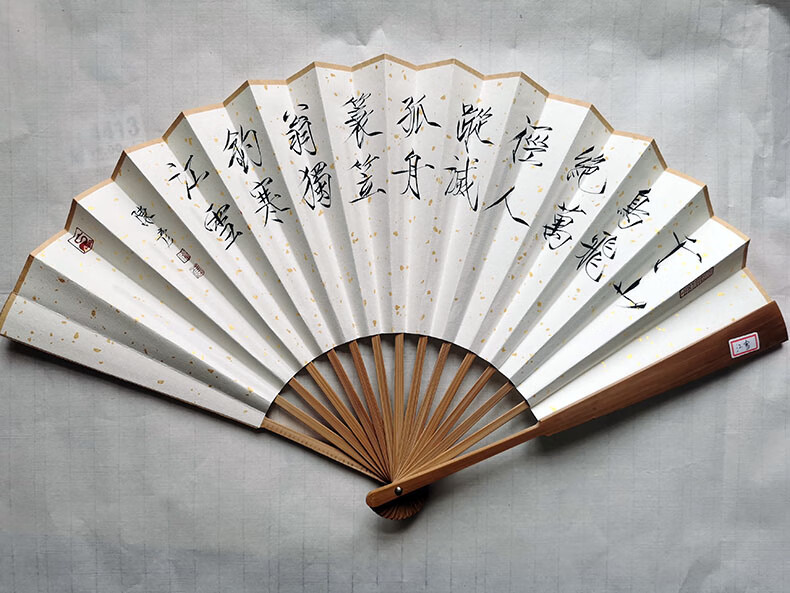 千山
鳥飛
絕萬
徑人
蹤滅
孤舟
蓑笠
翁獨
釣寒
江雪
江雪